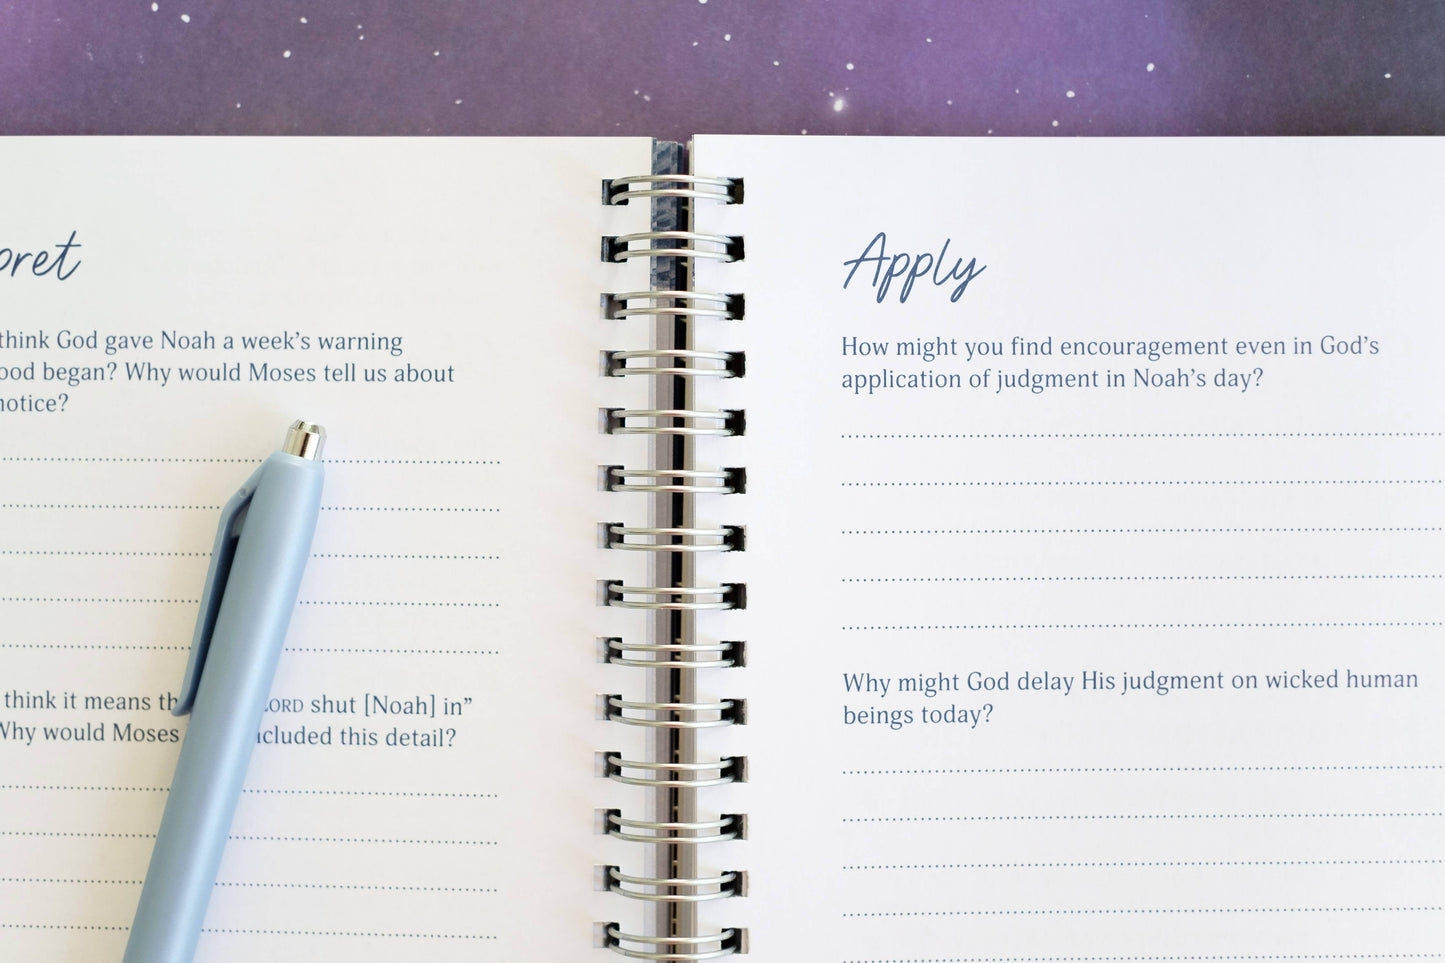 pret
think God gave Noah a week's warning
ood began? Why would Moses tell us about
notice?
think it means th LORD shut [Noah] in"
Why would Moses cluded this detail?
Apply
How might you find encouragement even in God's
application of judgment in Noah's day?
Why might God delay His judgment on wicked human
beings today?